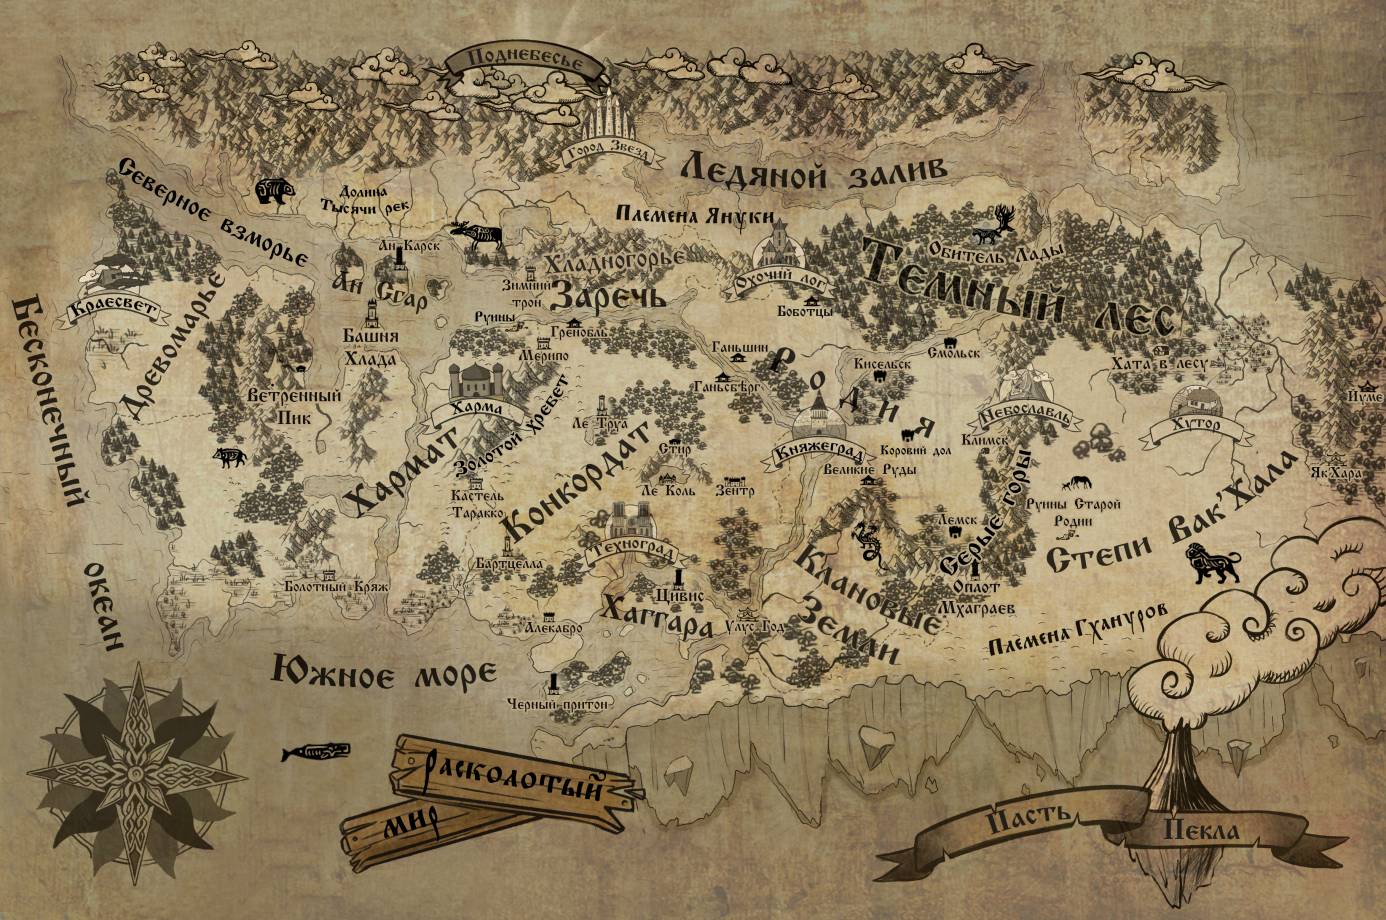 Поднебесье
Город Звезд
Ледяной залив
Северное взморье
Долина
Тысячи рек
Племена Януки
Ан-Карск
Ан Сгар
Хладногорье
Заречь
Зимний
трой
Охочий лог
Боботцы
Обитель Лады
Темный лес
Краесвет
Древомарье
Башня
Хлада
Руины
Гренобль
Мерипо
Ганьшин
Ганьсберг
Родия
Кисельск
Смольск
Хата в лесу
Ветренный
Пик
Харма
Золотой хребет
Ле Труа
Стир
Княжеград
Коровий дол
Великие Руды
Небославль
Климск
Хутор
Бесконечный
океан
Хармат
Конкордат
Кастель
Таракко
Ле Коль
Зентр
Руины Старой
Родии
Як'Хара
Степи Вак'Хала
Серые горы
Лемск
Оплот
Мхаграев
Техноград
Бартцелла
Болотный Кряж
Цивис
Хаггара
Улус Год
Алекабро
Клановые
Земли
Племена Гхануров
Южное море
Черный притон
Расколотый
мир
Пасть Пекла